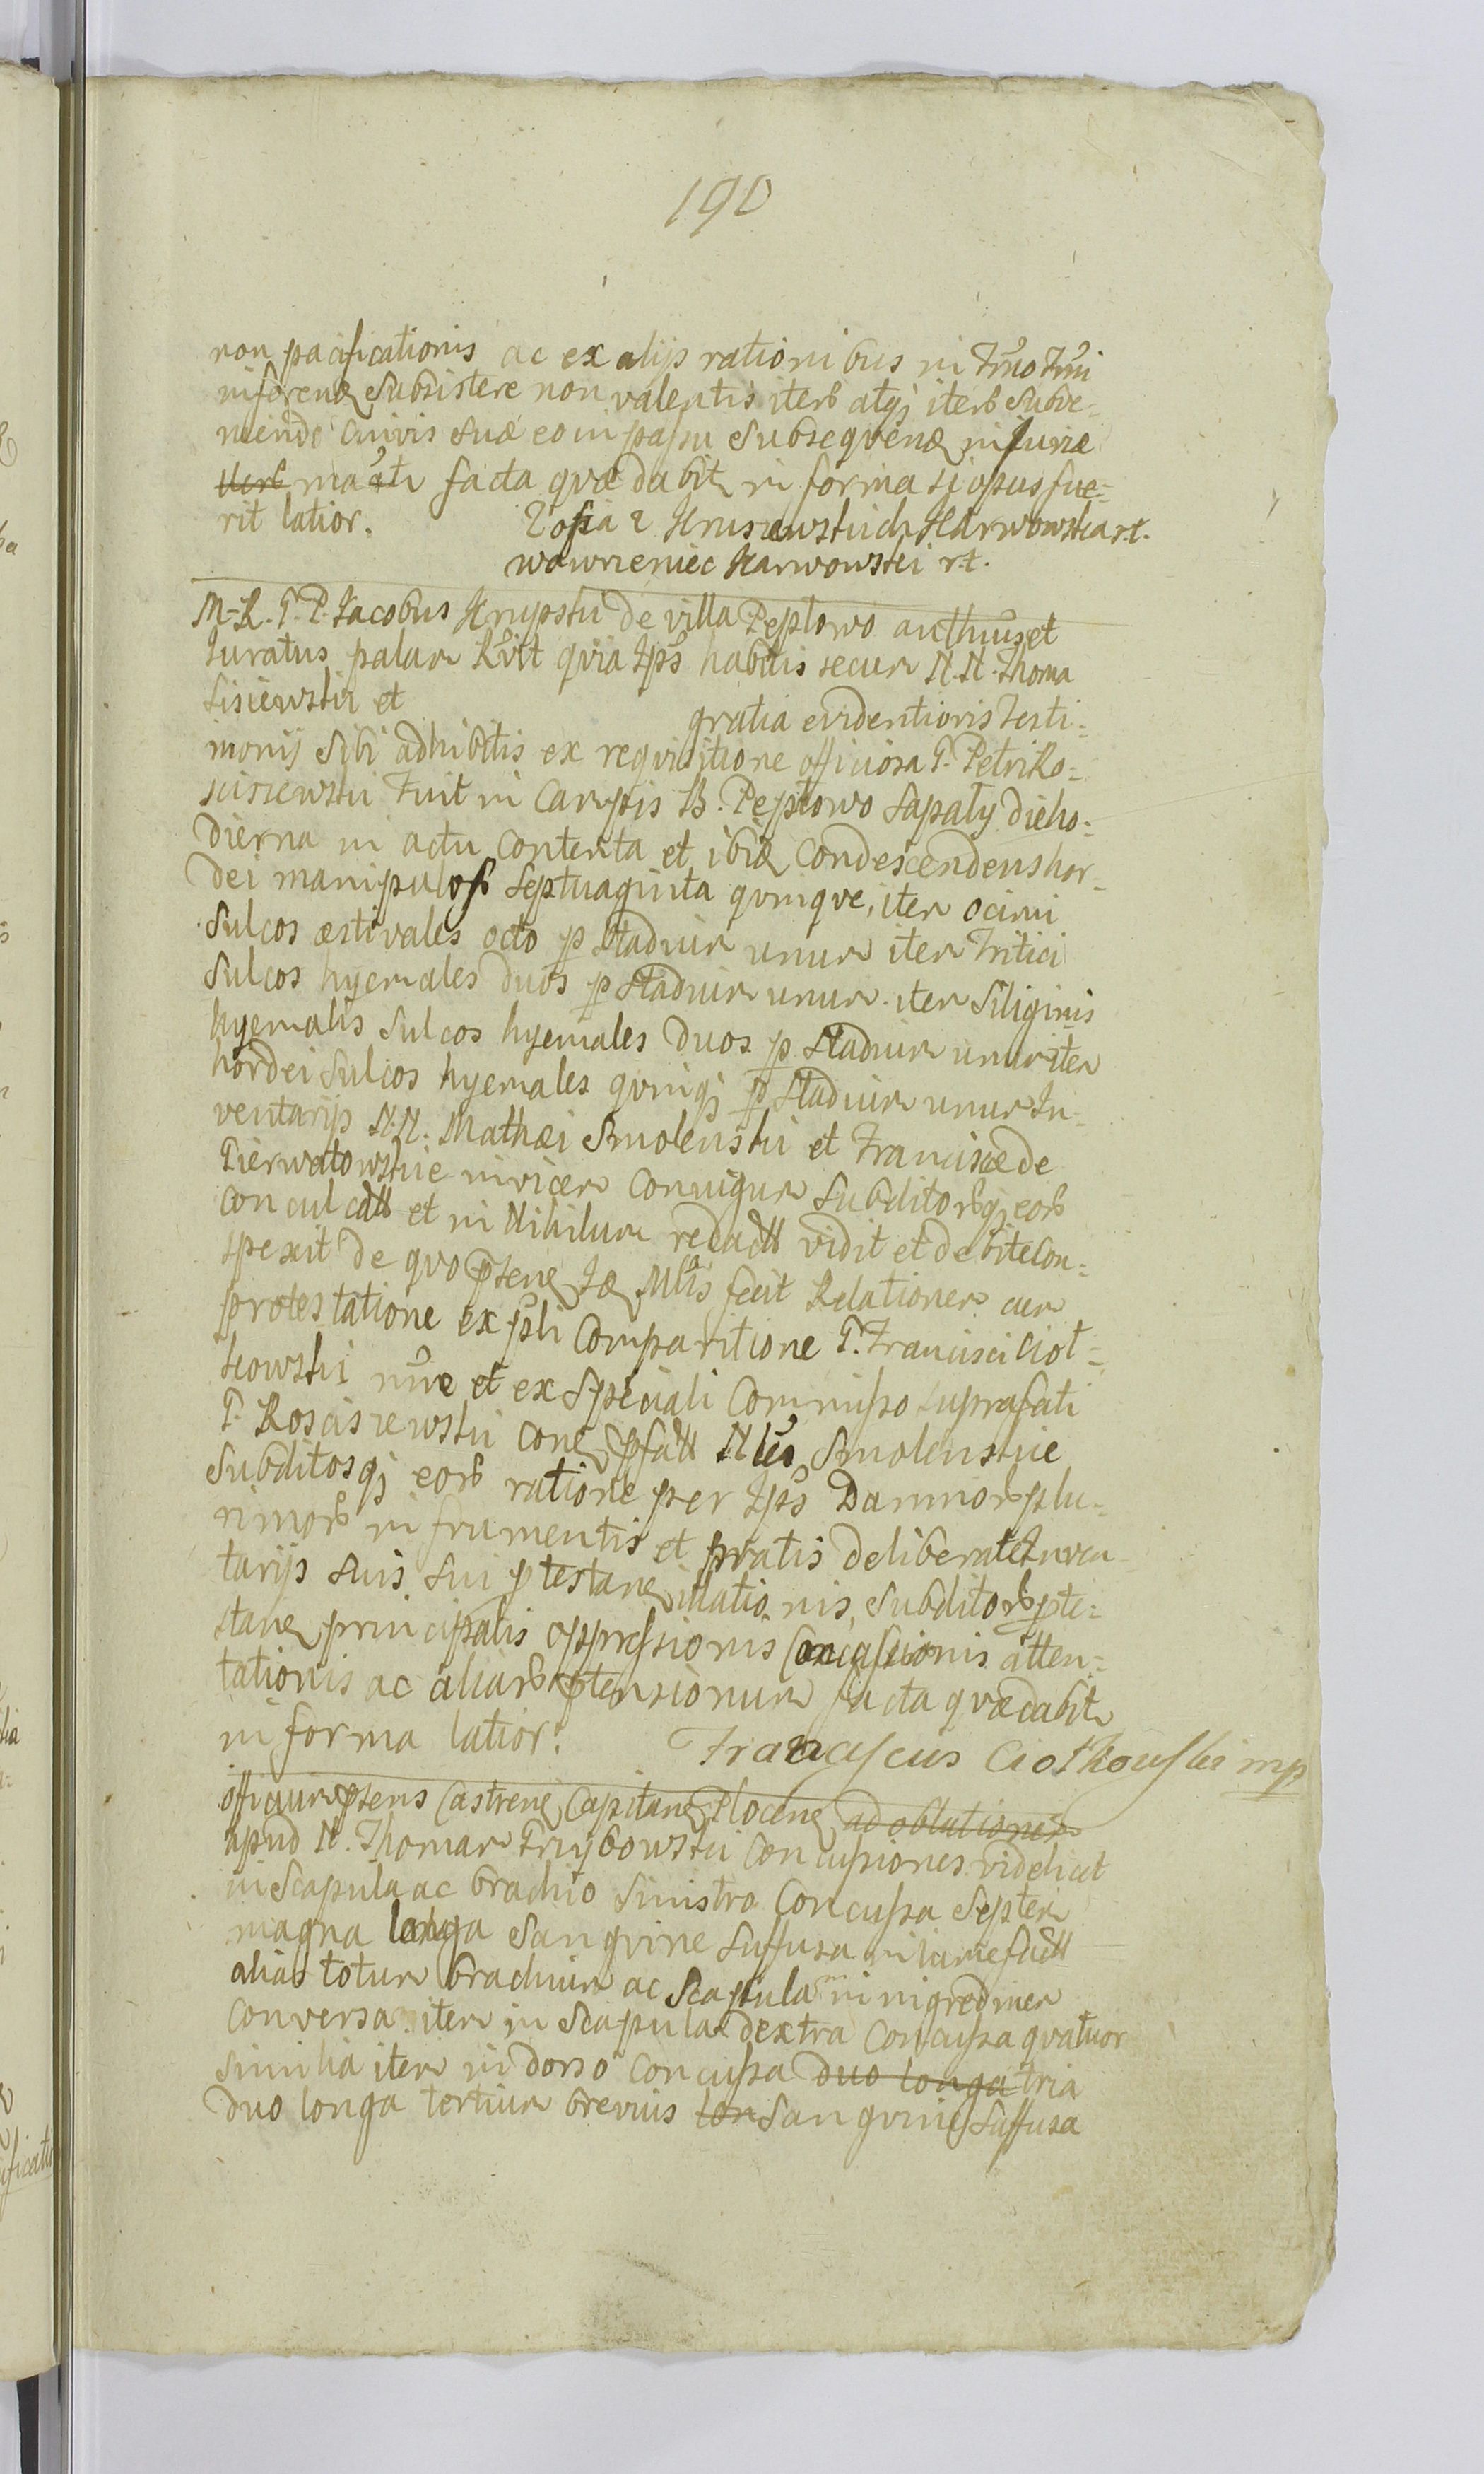 190
non pacificationis ac ex alijs rationibus in Tmo Tmi
inferend subsistere non valentis iterb atq iterb subve=
niendo cuivis suæ eo in passu subsequend injuriæ
iterb facta quæ dabit in forma si opus fue=
rit latior. Zofia z Krusrewskich Karwowska r.t.
Wawrzeniec Karwowski r.t.
M-L. G. P. Jacobus Krupski de villa Peplowo authus et
Juratus palam Rvit quia Ips habitis secum N.N. Thoma
Lisiewski et gratia evidentioris Testi=
monij sibi adhibitis ex requisitione officiosa G. Petri Ro=
sciszewski Fuit in Campis B. Peplowo Sapaty die ho=
dierna in actu contenta et ibid condescendens hor=
dei manipulos septuaginta quinque, item ocimi
sulcos æstivales octo p stadium unum item Tritici
sulcos hyemales duos p stadium unum item siliginis
hyemalis sulcos hyemales duos p stadium unum item
hordei sulcos hyemales quinq p stadium unum In=
ventarijs N.N. Mathæi Smolenski et Franciscæ de
Pierwatowskie invicem Conjugum subditorbq eorb
conculcatt et in Nihilum redactt vidit et debite con=
spexit de quo psens Id Mlis fecit Relationem cum
protestatione ex psli comparitione G. Francisci Ciot=
kowski nne et ex speciali commisso suprafati
G. Rosciszewski con pfatt Nles Smolenskie
subditosq eorb ratione per Ips Damnorb plu=
rimorb in frumentis et pratis deliberate Inven=
tarijs suis sui ptestan illationis, subditorb pte=
stan principalis oppressionis concussionis atten=
tationis ac aliarb ptensionum facta quæ dabit
in forma latior. Franciscus Ciotkowski mp
officium psens Castren Capitan Plocen ad oblationem
apud N. Thomam Grzybowski concussiones videlicet
in scapula ac brachio sinistro concussa septem
magna longa sanguine suffusa
alias totum brachium ac scapula in nigredinem
conversa item in scapula dextra concussa quatuor
similia item in dorso concussa duo longa tria
duo longa tertium brevius lon sanguine suffusa